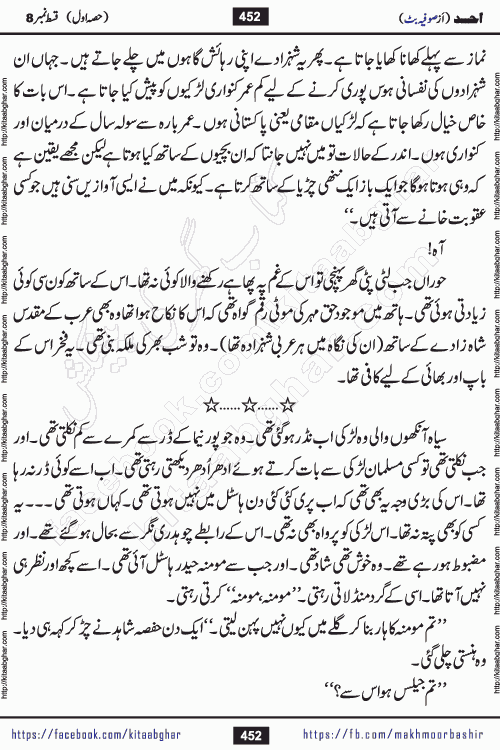 احد (از صوفیہ بٹ) 452 (حصہ اول) قسط نمبر 8
نماز سے پہلے کھانا کھایا جاتا ہے۔ پھر یہ شہزادے اپنی رہائش گاہوں میں چلے جاتے ہیں۔ جہاں ان
شہزادوں کی نفسانی ہوس پوری کرنے کے لیے کم عمر کنواری لڑکیوں کو پیش کیا جاتا ہے۔ اس بات کا
خاص خیال رکھا جاتا ہے کہ لڑکیاں مقامی یعنی پاکستانی ہوں۔ عمر بارہ سے سولہ سال کے درمیان اور
کنواری ہوں۔ اندر کے حالات تو میں نہیں جانتا کہ ان بچیوں کے ساتھ کیا ہوتا ہے لیکن مجھے یقین ہے
کہ وہی ہوتا ہوگا جو ایک باز ایک ننھی چڑیا کے ساتھ کرتا ہے۔ کیونکہ میں نے ایسی آوازیں سنی ہیں جو کسی
عقوبت خانے سے آتی ہیں۔‘‘
آہ!
حوراں جب لٹی پٹی گھر پہنچی تو اس کے غم پہ پھاہے رکھنے والا کوئی نہ تھا۔ اس کے ساتھ کون سی کوئی
زیادتی ہوئی تھی۔ ہاتھ میں موجود حق مہر کی موٹی رقم گواہ تھی کہ اس کا نکاح ہوا تھا وہ بھی عرب کے مقدس
شاہ زادے کے ساتھ (ان کی نگاہ میں ہر عربی شہزادہ تھا)۔ وہ تو شب بھر کی ملکہ بنی تھی۔ یہ فخر اس کے
باپ اور بھائی کے لیے کافی تھا۔
☆......☆......☆
سیاہ آنکھوں والی وہ لڑکی اب نڈر ہوگئی تھی۔ وہ جو پورنیما کے ڈر سے کمرے سے کم نکلتی تھی۔ اور
جب نکلتی تھی تو کسی مسلمان لڑکی سے بات کرتے ہوئے ادھر اُدھر دیکھتی رہتی تھی۔ اب اسے کوئی ڈر نہ رہا
تھا۔ اس کی بڑی وجہ یہ بھی تھی کہ اب پری کئی کئی دن ہاسٹل میں نہیں ہوتی تھی۔ کہاں ہوتی تھی ۔۔۔ یہ
کسی کو بھی پتہ نہ تھا۔ اس لڑکی کو پرواہ بھی نہ تھی۔ اس کے رابطے چوہدری نگر سے بحال ہو گئے تھے۔ اور
مضبوط ہو رہے تھے۔ وہ خوش تھی شاد تھی۔ اور جب سے مومنہ حیدر ہاسٹل آئی تھی۔ اسے کچھ اور نظر ہی
نہیں آتا تھا۔ اسی کے گرد منڈلاتی رہتی۔ ’’مومنہ، مومنہ‘‘ کرتی رہتی۔
’’تم مومنہ کا ہار بنا کر گلے میں کیوں نہیں پہن لیتی۔‘‘ ایک دن حفصہ شاہد نے چڑ کر کہہ ہی دیا۔
وہ ہنستی چلی گئی۔
’’تم جیلس ہو اس سے؟‘‘
https://facebook.com/kitaabghar 452 https://fb.com/makhmoorbashir
http://kitaabghar.com